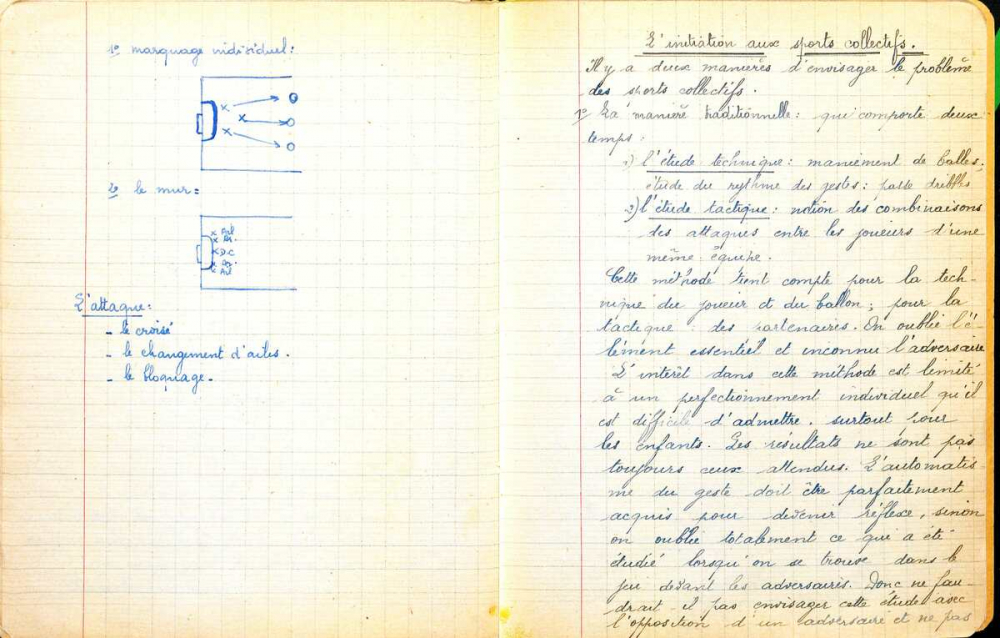 1º marquage individuel:
2º le mur:
x Ail
x Ar.
x D.C
x Ar.
x Ail
L'attaque:
- le croisé
- le changement d'ailes.
- le bloquage.
L'initiation aux sports collectifs.
Il y a deux manières d'envisager le problème
des sports collectifs.
1º La manière traditionnelle: qui comporte deux
temps.
1) l'étude technique: maniement de balles,
étude du rythme des gestes: passe dribbles
2) l'étude tactique: notion des combinaisons
des attaques entre les joueurs d'une
même équipe.
Cette méthode tient compte pour la tech-
nique du joueur et du ballon; pour la
tactique: des partenaires. On oublie l'é-
lément essentiel et inconnu l'adversaire
L'intérêt dans cette méthode est limité
à un perfectionnement individuel qu'il
est difficile d'admettre, surtout pour
les enfants. Les résultats ne sont pas
toujours ceux attendus. L'automatis-
me du geste doit être parfaitement
acquis pour devenir réflexe, sinon
on oublie totalement ce que a été
étudié lorsqu'on se trouve dans le
jeu devant les adversaires. Donc ne fau-
drait-il pas envisager cette étude avec
l'opposition d'un adversaire et ne pas